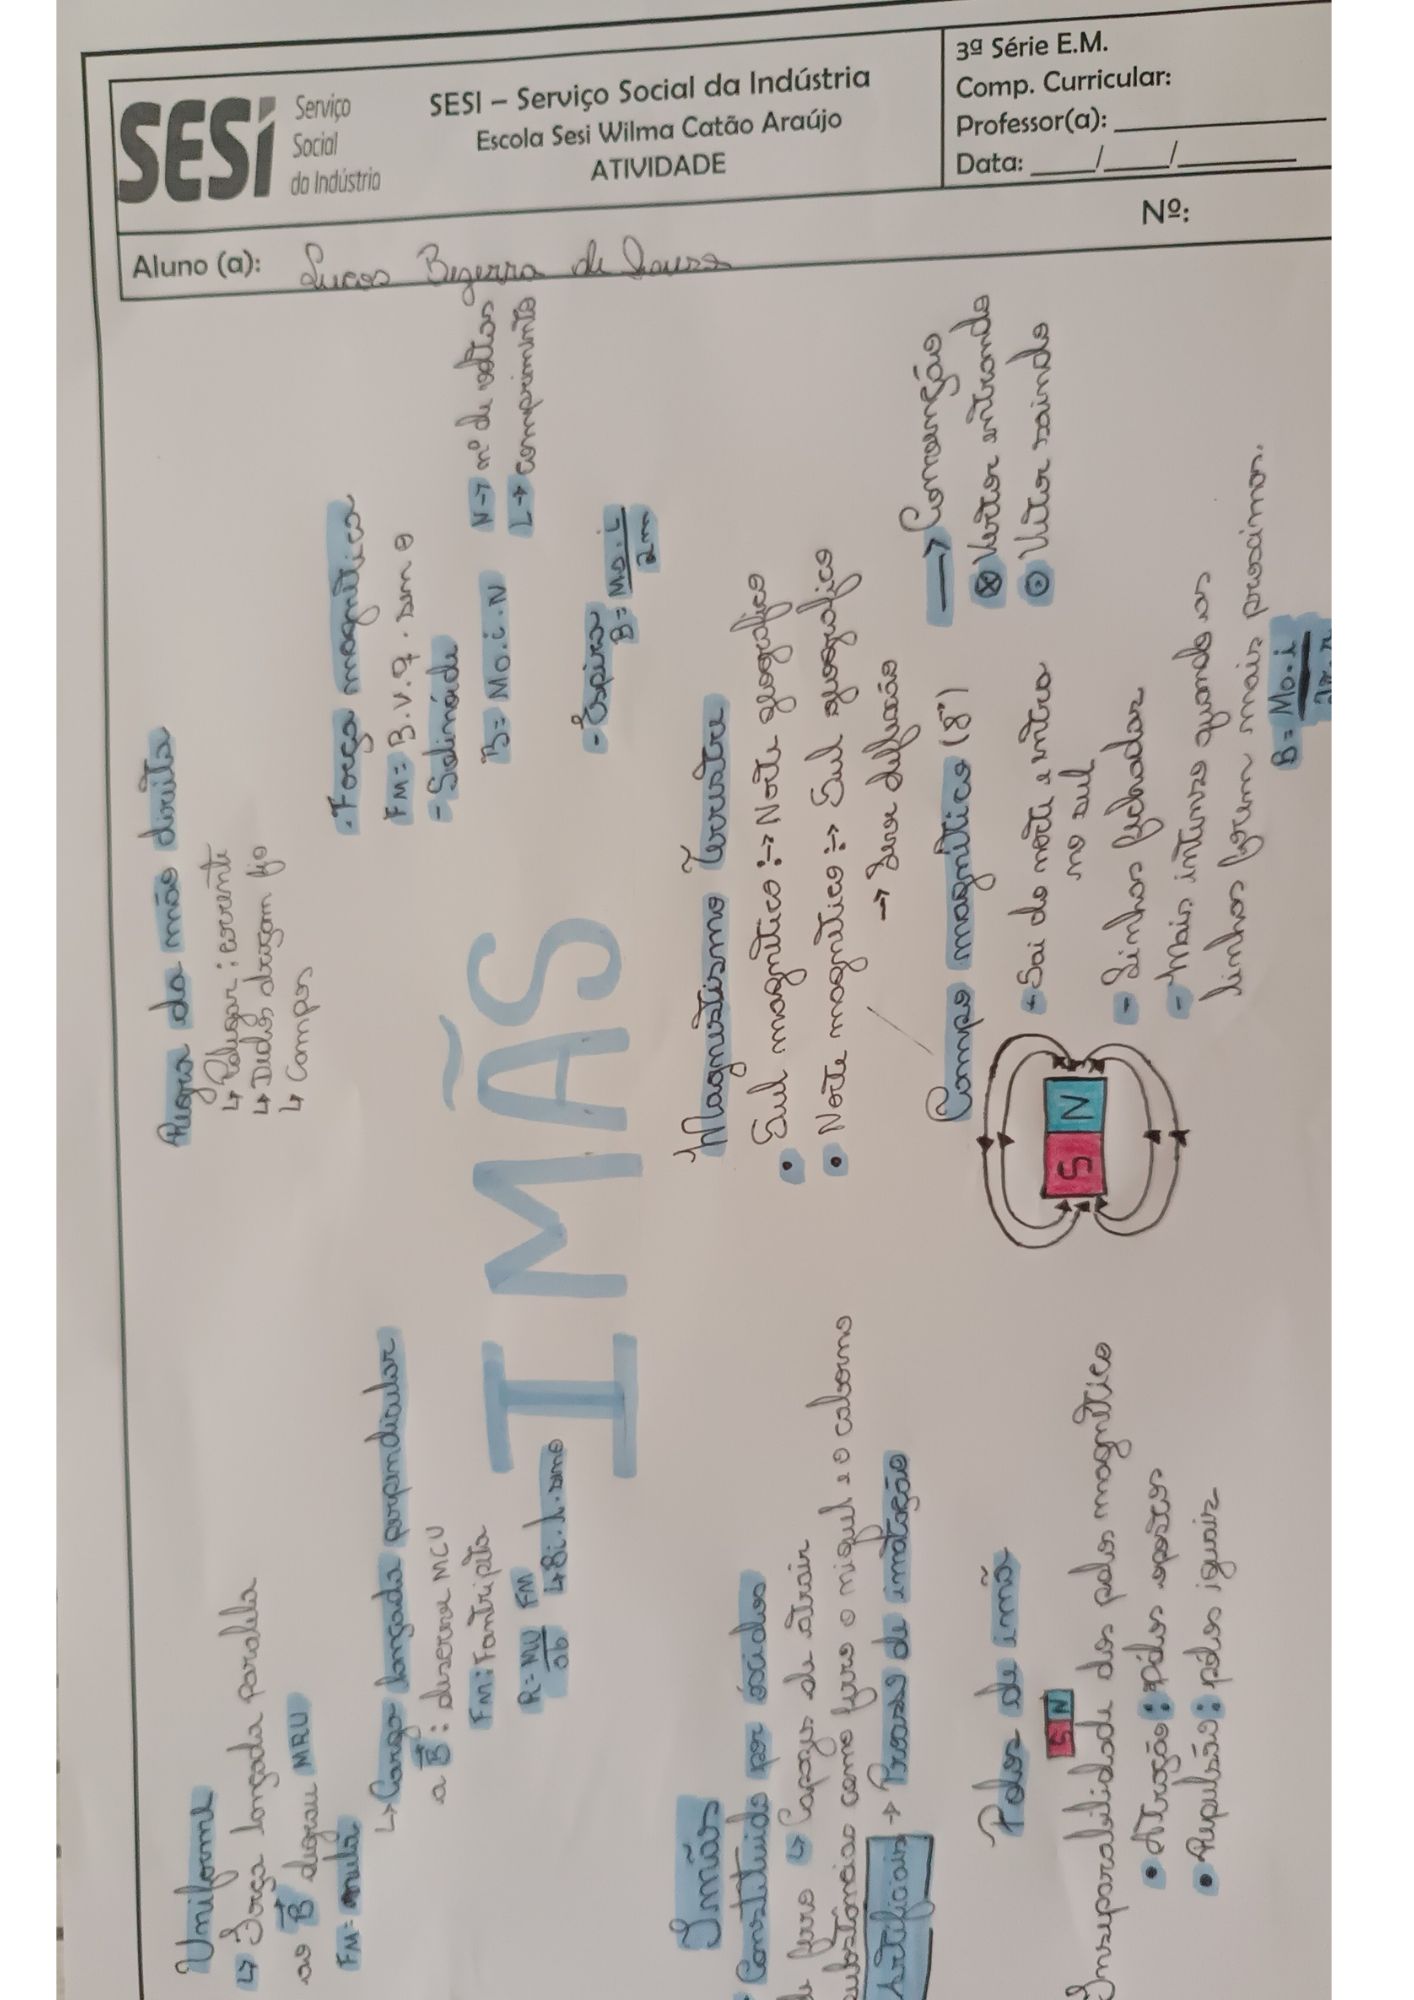 SESI
Serviço
Social
da Indústria
SESI – Serviço Social da Indústria
Escola Sesi Wilma Catão Araújo
ATIVIDADE
3ª Série E.M.
Comp. Curricular:
Professor(a):
Data: ___/___/___
Nº:
Aluno (a): Lucas Bezerra de Souza
Uniforme
↳ Força lançada paralela
ao B⃗ MRU
FM= nula
↳ Carga lançada perpendicular
a B⃗: descreve MCU
FM:
FM
Regra da mão direita
↳ Polegar: corrente
↳ Dedos
↳ Campos
- Força magnética
FM= B.V.q. sen θ
- Solenóide
B= Mo.i.N
N→ nº de voltas
L→ comprimento
- Espira
B= Mo.i
IMÃS
Imãs
Constituído por óxidos
de ferro ↳ Capazes de atrair
substâncias como ferro o níquel e o
Artificiais → de
Polos de imã
S N
Inseparabilidade dos polos magnético
• Atração: pólos opostos
• Repulsão: pólos iguais
Magnetismo Terrestre
• Sul magnético :→ Norte geográfico
• Norte magnético :→ Sul geográfico
Campo magnético (B⃗)
S N
- Sai do norte e entra
no sul
- Linhas fechadas
- Mais intenso quando as
linhas forem mais proximas.
B= Mo.i
→ Convenção
⊗ Vetor entrando
⊙ Vetor saindo